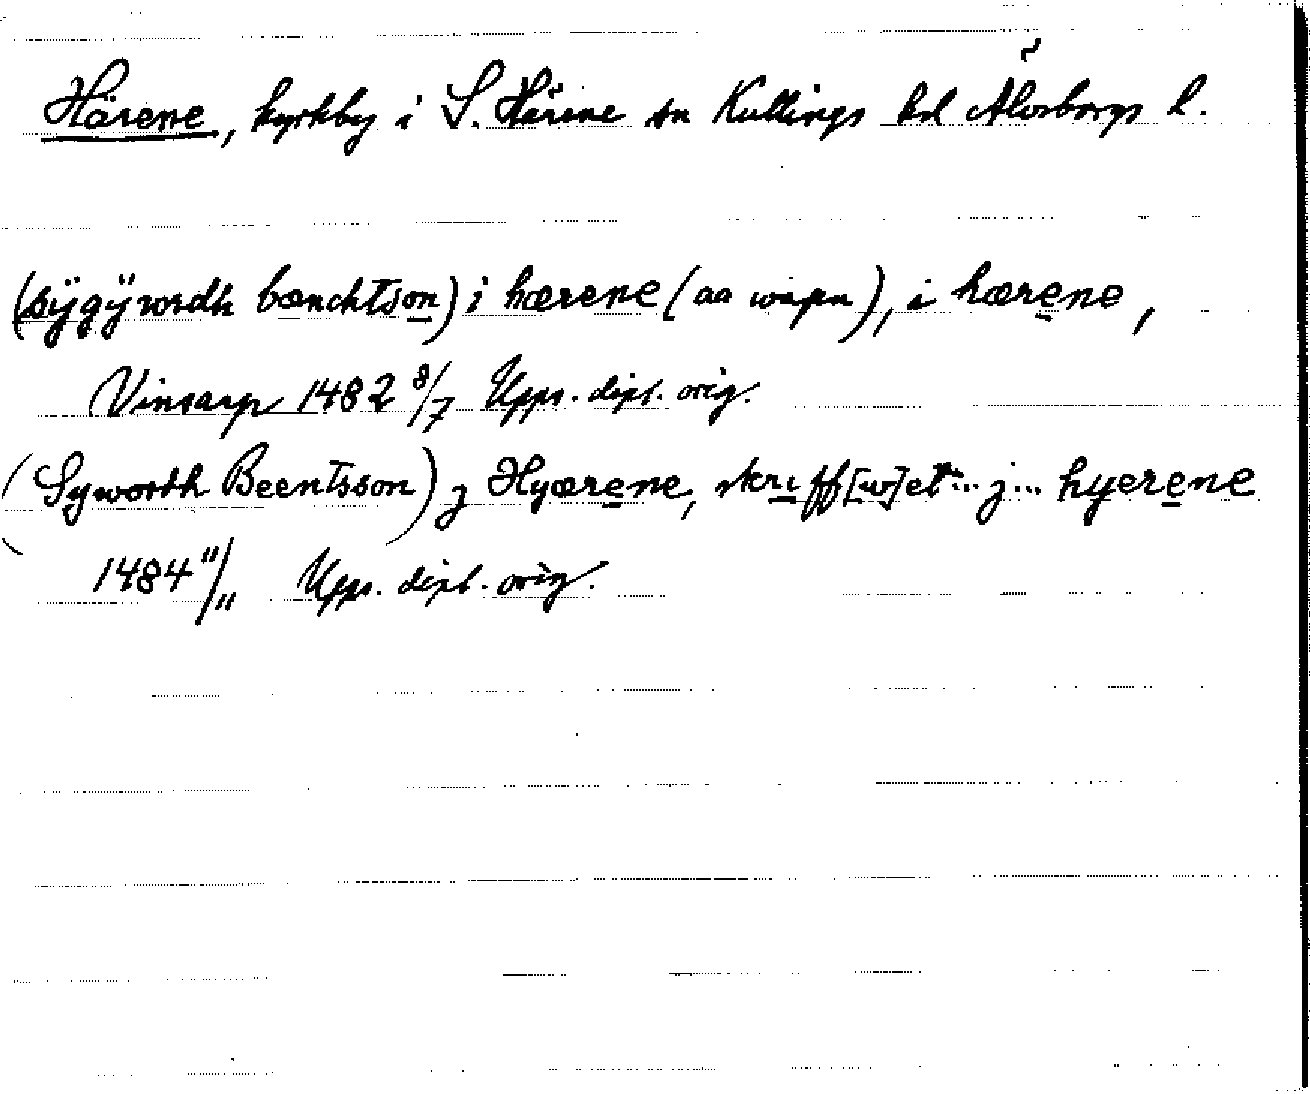 Härene, kyrkby i S. Härene sn Kullings hd Älvsborgs l.
(sÿgÿwrdh bænchtson) i hærene (aa wapn), i hærene,
Vinsarp 1482 8/7 Upps. dipl. orig.
(Syworth Beentsson) j Hyærene, skriff[w]et ... j ... hyerene
1484 11/11 Upps. dipl. orig.